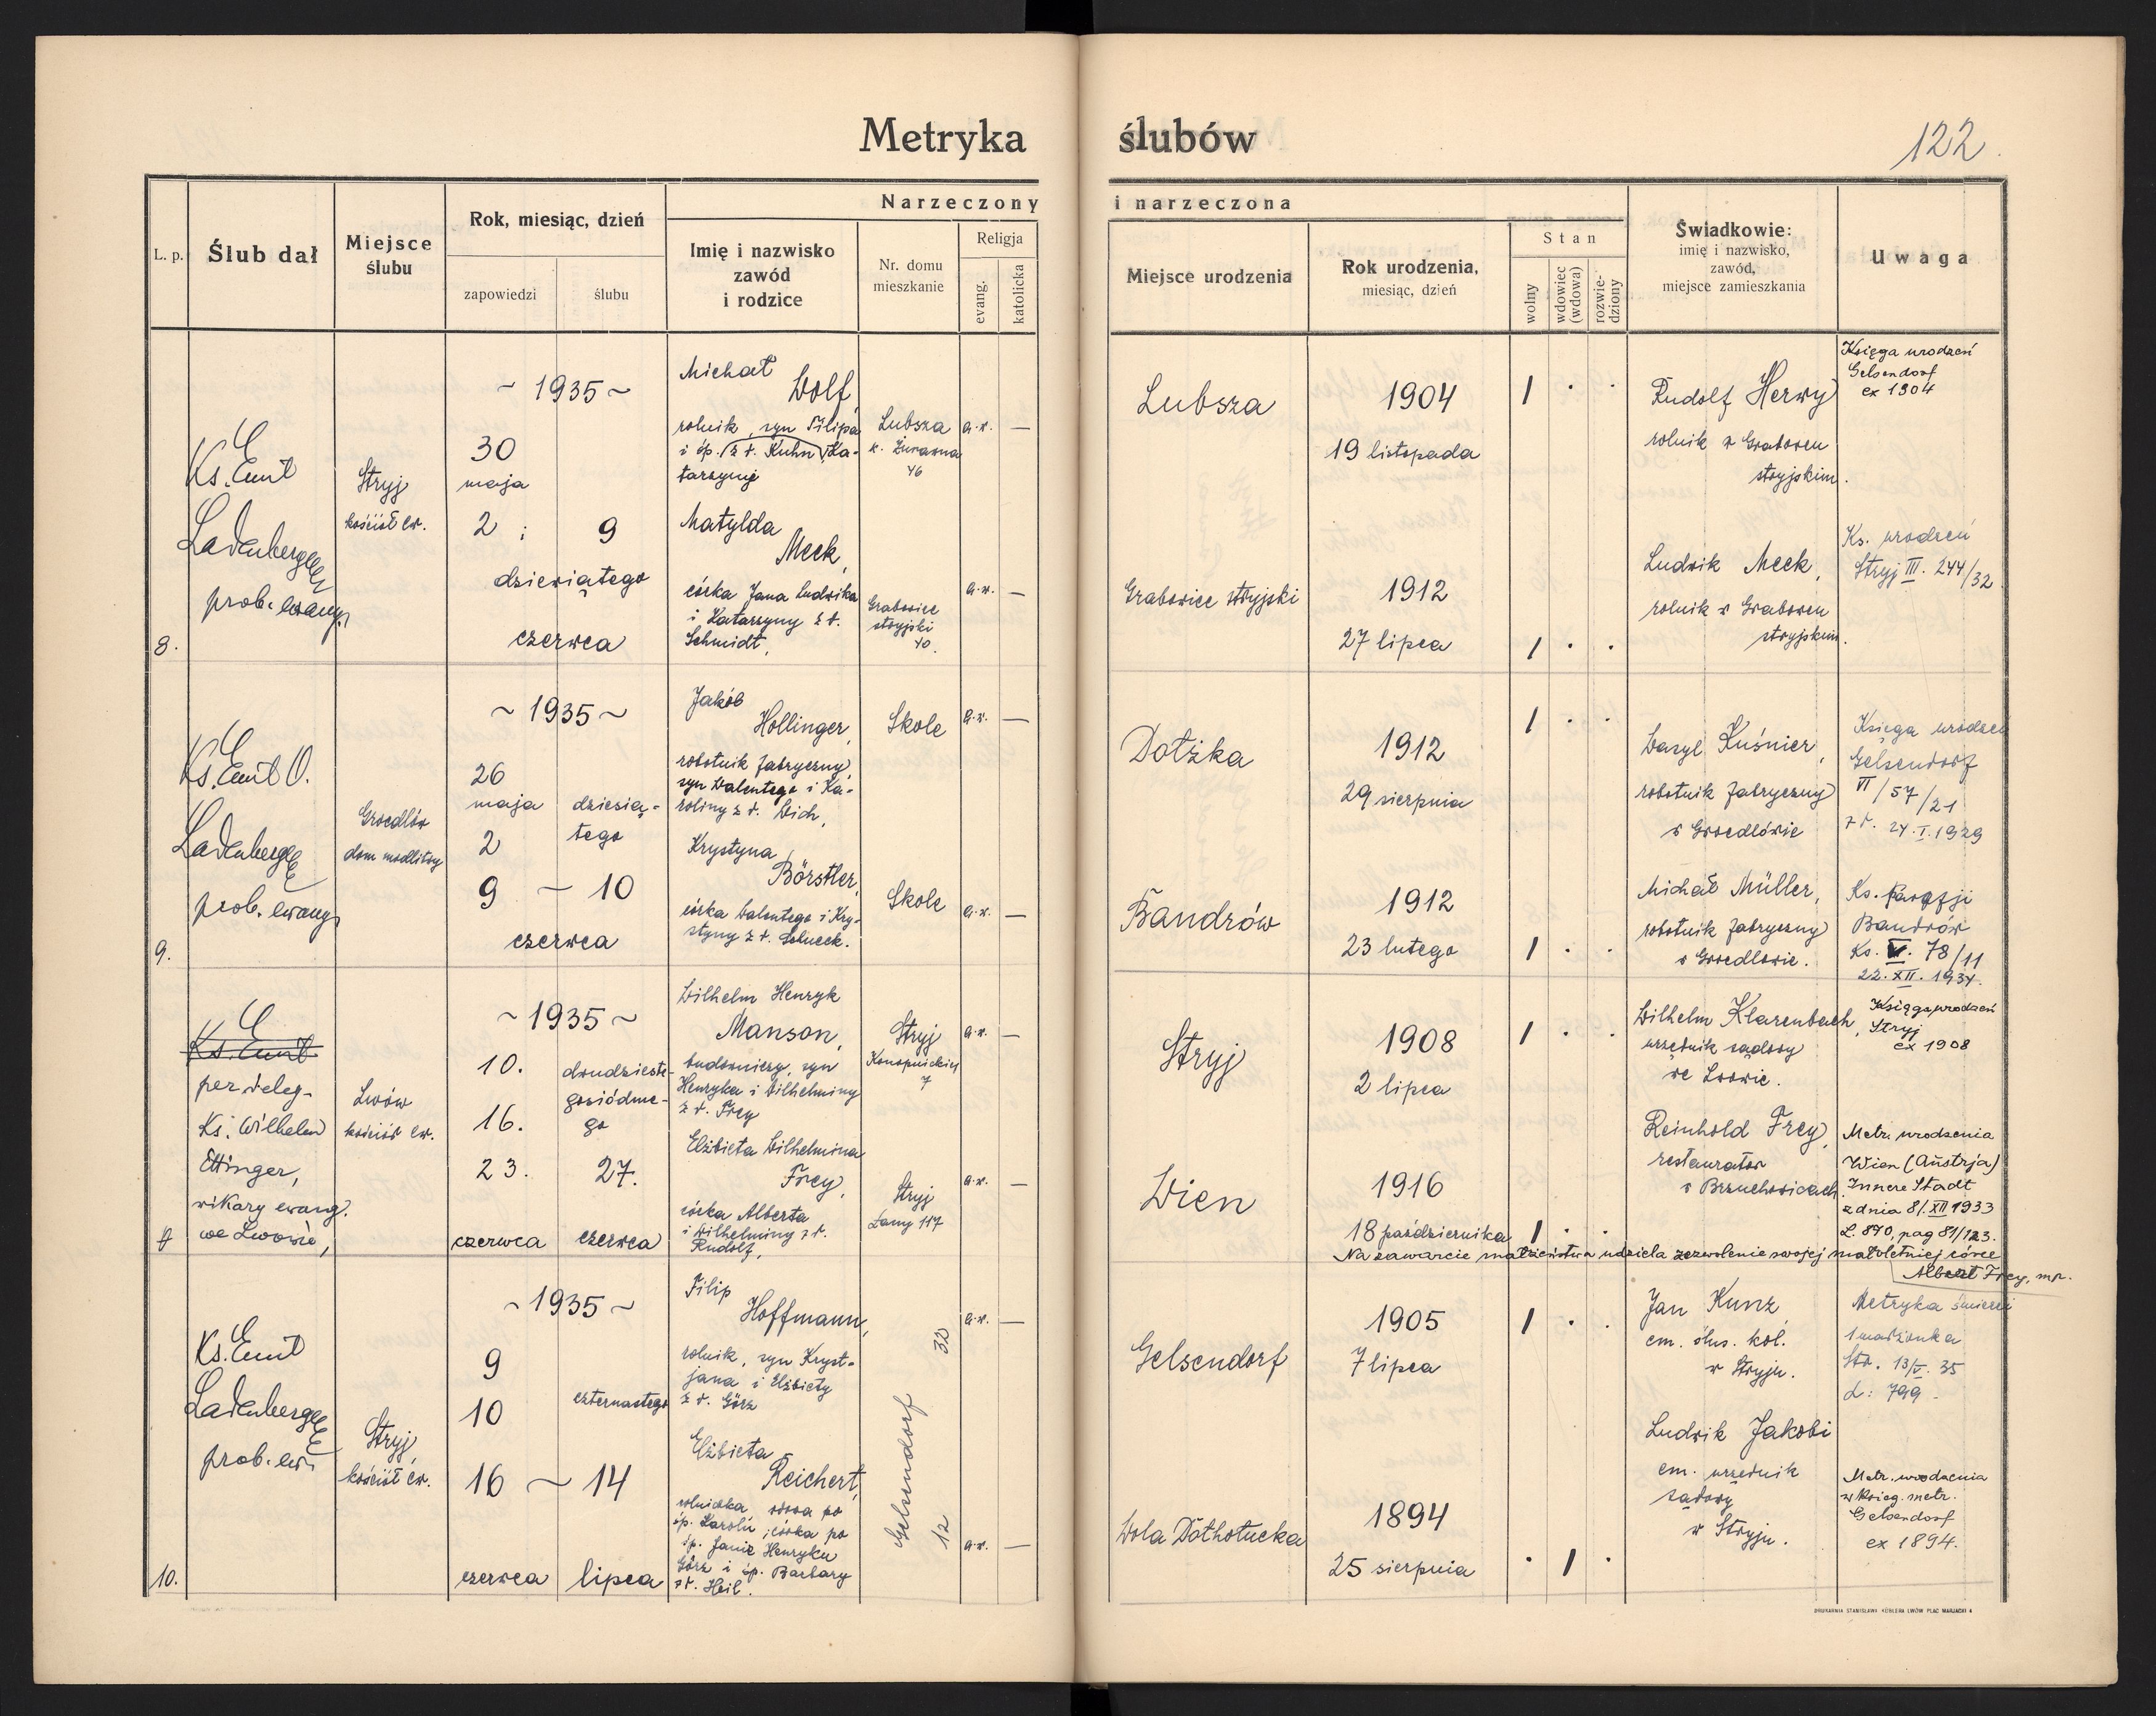 Metryka ślubów
122
L. p.
Ślub dał
Miejsce
ślubu
Rok, miesiąc, dzień
zapowiedzi
ślubu
Narzeczony
Imię i nazwisko
zawód
i rodzice
Nr. domu
mieszkanie
Religja
evang.
katolicka
i narzeczona
Miejsce urodzenia
Rok urodzenia,
miesiąc, dzień
Stan
wolny
wdowiec
(wdowa)
rozwie-
dziony
Świadkowie:
imię i nazwisko,
zawód,
miejsce zamieszkania
Uwaga
8.
Ks. Emil
Ladenberger
prob. ewang.
Stryj
kościół ew.
~ 1935 ~
30
maja
2 ; 9
dziewiątego
czerwca
Michał
Wolf,
rolnik, syn Filipa
i śp. (z d. Kuhn) Ka-
tarzyny
Lubsza
k. Żurawna
46
a.w. —
Matylda
Meck,
córka Jana Ludwika
i Katarzyny z d.
Schmidt,
Grabowiec
stryjski
40.
a.w. —
Lubsza
1904
19 listopada
1 . .
Rudolf Herwy
rolnik w Grabowcu
stryjskim.
Księga urodzeń
Gelsendorf
ex 1904
Grabowiec stryjski
1912
27 lipca
1 . .
Ludwik Meck,
rolnik w Grabowcu
stryjskim.
Ks. urodzeń
Stryj III. 244/32
9.
Ks. Emil O.
Ladenberger
prob. ewang.
Groedlów
dom modlitwy
~ 1935 ~
26
maja
2
9 — 10
dziesią-
tego
czerwca
Jakób
Hollinger,
robotnik fabryczny,
syn Walentego i Ka-
roliny z d. Wich,
Skole
a.w. —
Krystyna
Börstler,
córka Walentego i Kry-
styny z d. Schneck.
Skole
a.w. —
Dołżka
1912
29 sierpnia
1 . .
Wasyl Kuśnier,
robotnik fabryczny
w Groedlówie
Księga urodzeń
Gelsendorf
VI/57/21
z d. 24.I.1929
Bandrów
1912
23 lutego
1 . .
Michał Müller,
robotnik fabryczny
w Groedlowie.
Ks. parafji
Bandrów
Ks. VI. 78/11
22.XII.1934.
Ks. Emil
per deleg.
Ks. Wilhelm
Ettinger,
wikary ewang.
we Lwowie,
Lwów
kościół ew.
~ 1935 ~
10.
16.
23.
czerwca
dwudzieste-
gosiódme-
go
27.
czerwca
Wilhelm Henryk
Manson,
budowniczy, syn
Henryka i Wilhelminy
z d. Frey
Stryj
Konopnickiej
7
a.w. —
Elżbieta Wilhelmina
Frey,
córka Alberta
i Wilhelminy z d.
Rudolf,
Stryj
Łany 117
a.w. —
Stryj
1908
2 lipca
1 . .
Wilhelm Klarenbach,
urzędnik sądowy
we Lwowie.
Księga urodzeń
Stryj
ex 1908
Wien
1916
18 października
1 . .
Reinhold Frey,
restaurator
w Brzuchowicach
Metr. urodzenia
Wien (Austrja)
Innere Stadt
z dnia 8/.XII 1933
L. 870, pag 81/123.
Na zawarcie małżeństwa udziela zezwolenie swojej małoletniej córce
Albert Frey, mp.
10.
Ks. Emil
Ladenberger
prob. ew.
Stryj,
kościół ew.
~ 1935 ~
9
10
16 ~ 14
czternastego
czerwca lipca
Filip
Hoffmann,
rolnik, syn Kryst-
jana i Elżbiety
z d. Görz
32
a.w. —
Elżbieta
Reichert,
rolniczka, wdowa po
śp. Karolu, córka po
śp. Janie Henryku
Görz i śp. Barbary
z d. Heil.
Gelsendorf
12
a.w. —
Gelsendorf
1905
7 lipca
1 . .
Jan Kunz,
em. ślus. kol.
w Stryju.
Metryka śmierci
1 małżonka
Str. 13/V. 35
L: 799.
Wola Dołhołucka
1894
25 sierpnia
. 1 .
Ludwik Jakobi
em. urzędnik
sądowy
w Stryju.
Metr. urodzenia
w księg. metr.
Gelsendorf
ex 1894.
DRUKARNIA STANISŁAWA KOBLERA LWÓW PLAC MARJACKI 4